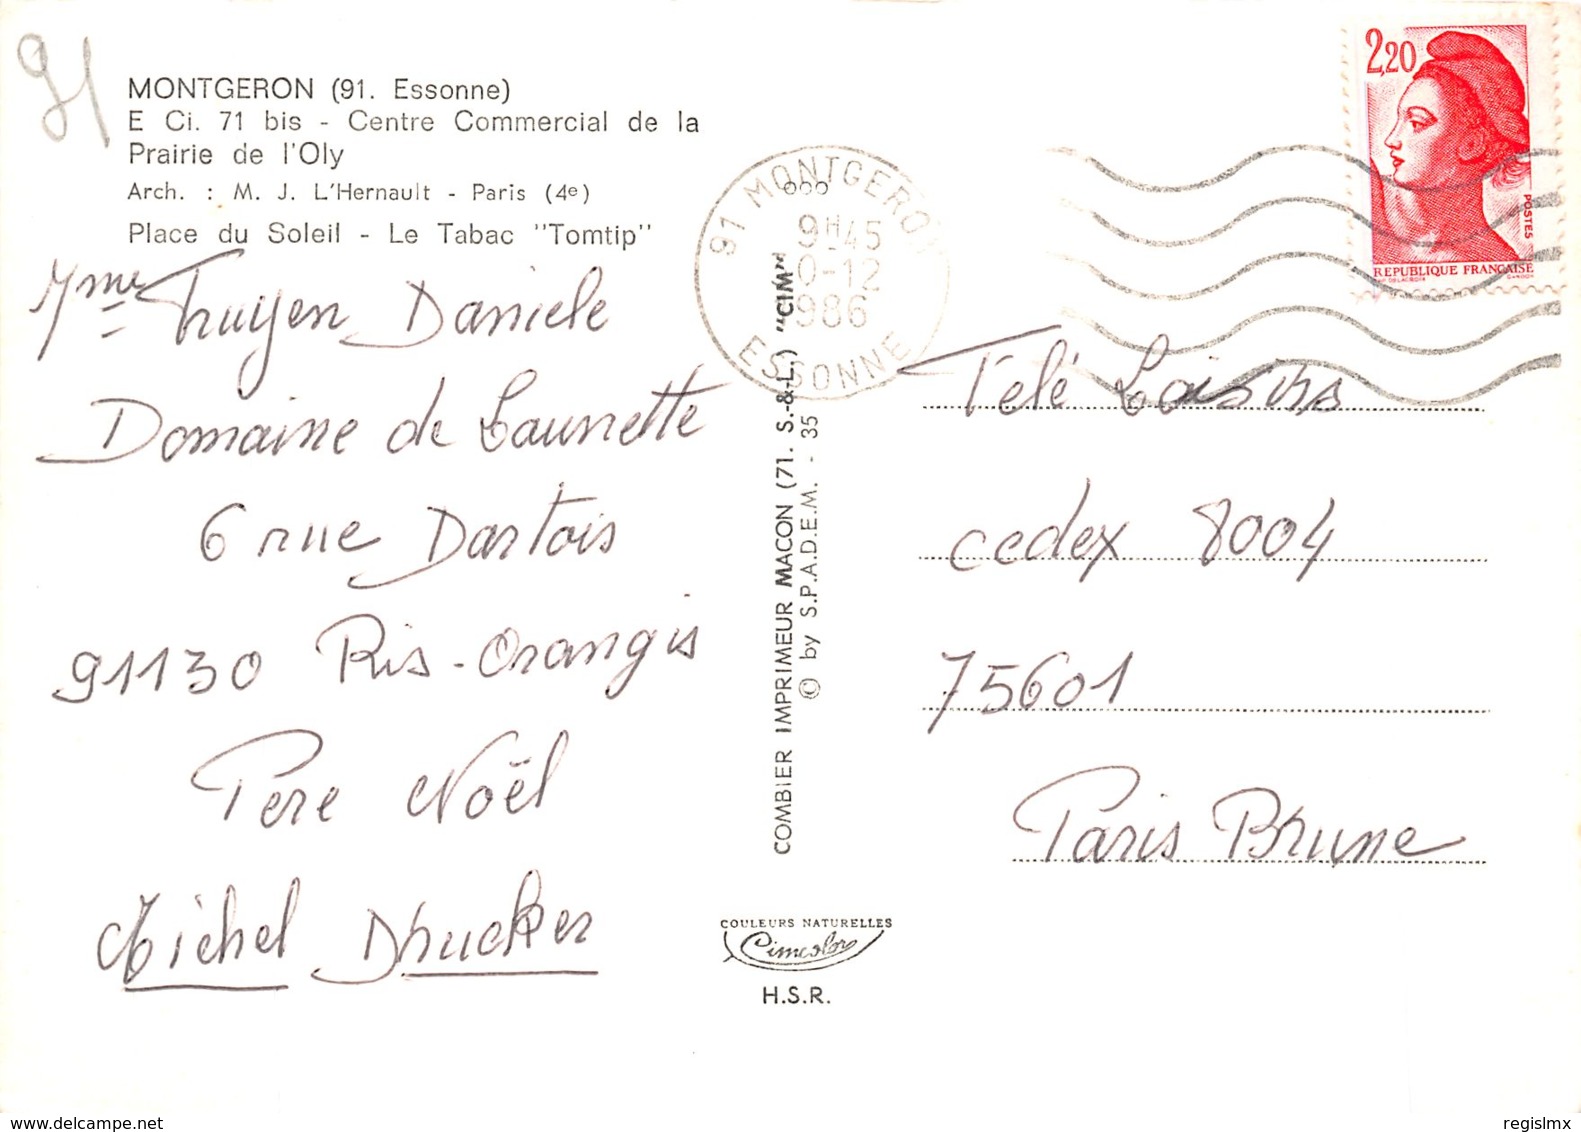 91
MONTGERON (91. Essonne)
E Ci. 71 bis - Centre Commercial de la
Prairie de l'Oly
Arch. : M. J. L'Hernault - Paris (4e)
Place du Soleil - Le Tabac "Tomtip"
Mme Thuyen Daniele
Domaine de Launette
6 rue Dartois
91130 Ris-Orangis
Pere Noël
Michel Drucker
COMBIER IMPRIMEUR MACON (71. S.-&-L.) "CIM"
© by S.P.A.D.E.M. - 35
COULEURS NATURELLES
Cimcolor
H.S.R.
91 MONTGERON
9H45
0-12
1986
ESSONNE
2,20
POSTES
REPUBLIQUE FRANÇAISE
GANDON
Télé Loisirs
cedex 8004
75601
Paris Brune
delcampe.net
regislmx